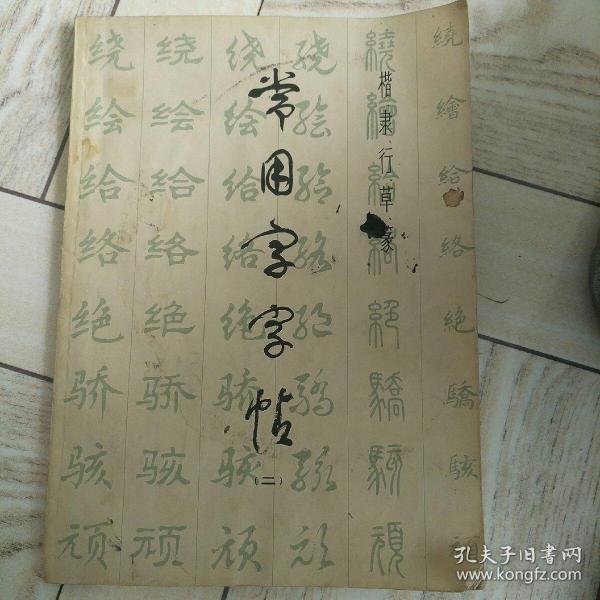 常用字字帖
(二)
楷·隶·行·草·篆
绕 绕 绕 绕 繞 繞
绘 绘 绘 绘 繪 繪
给 给 给 给 給 給
络 络 络 络 絡 絡
绝 绝 绝 绝 絕 絕
骄 骄 骄 骄 驕 驕
骇 骇 骇 骇 駭 駭
顽 顽 顽 顽 頑
孔夫子旧书网
www.kongfz.com